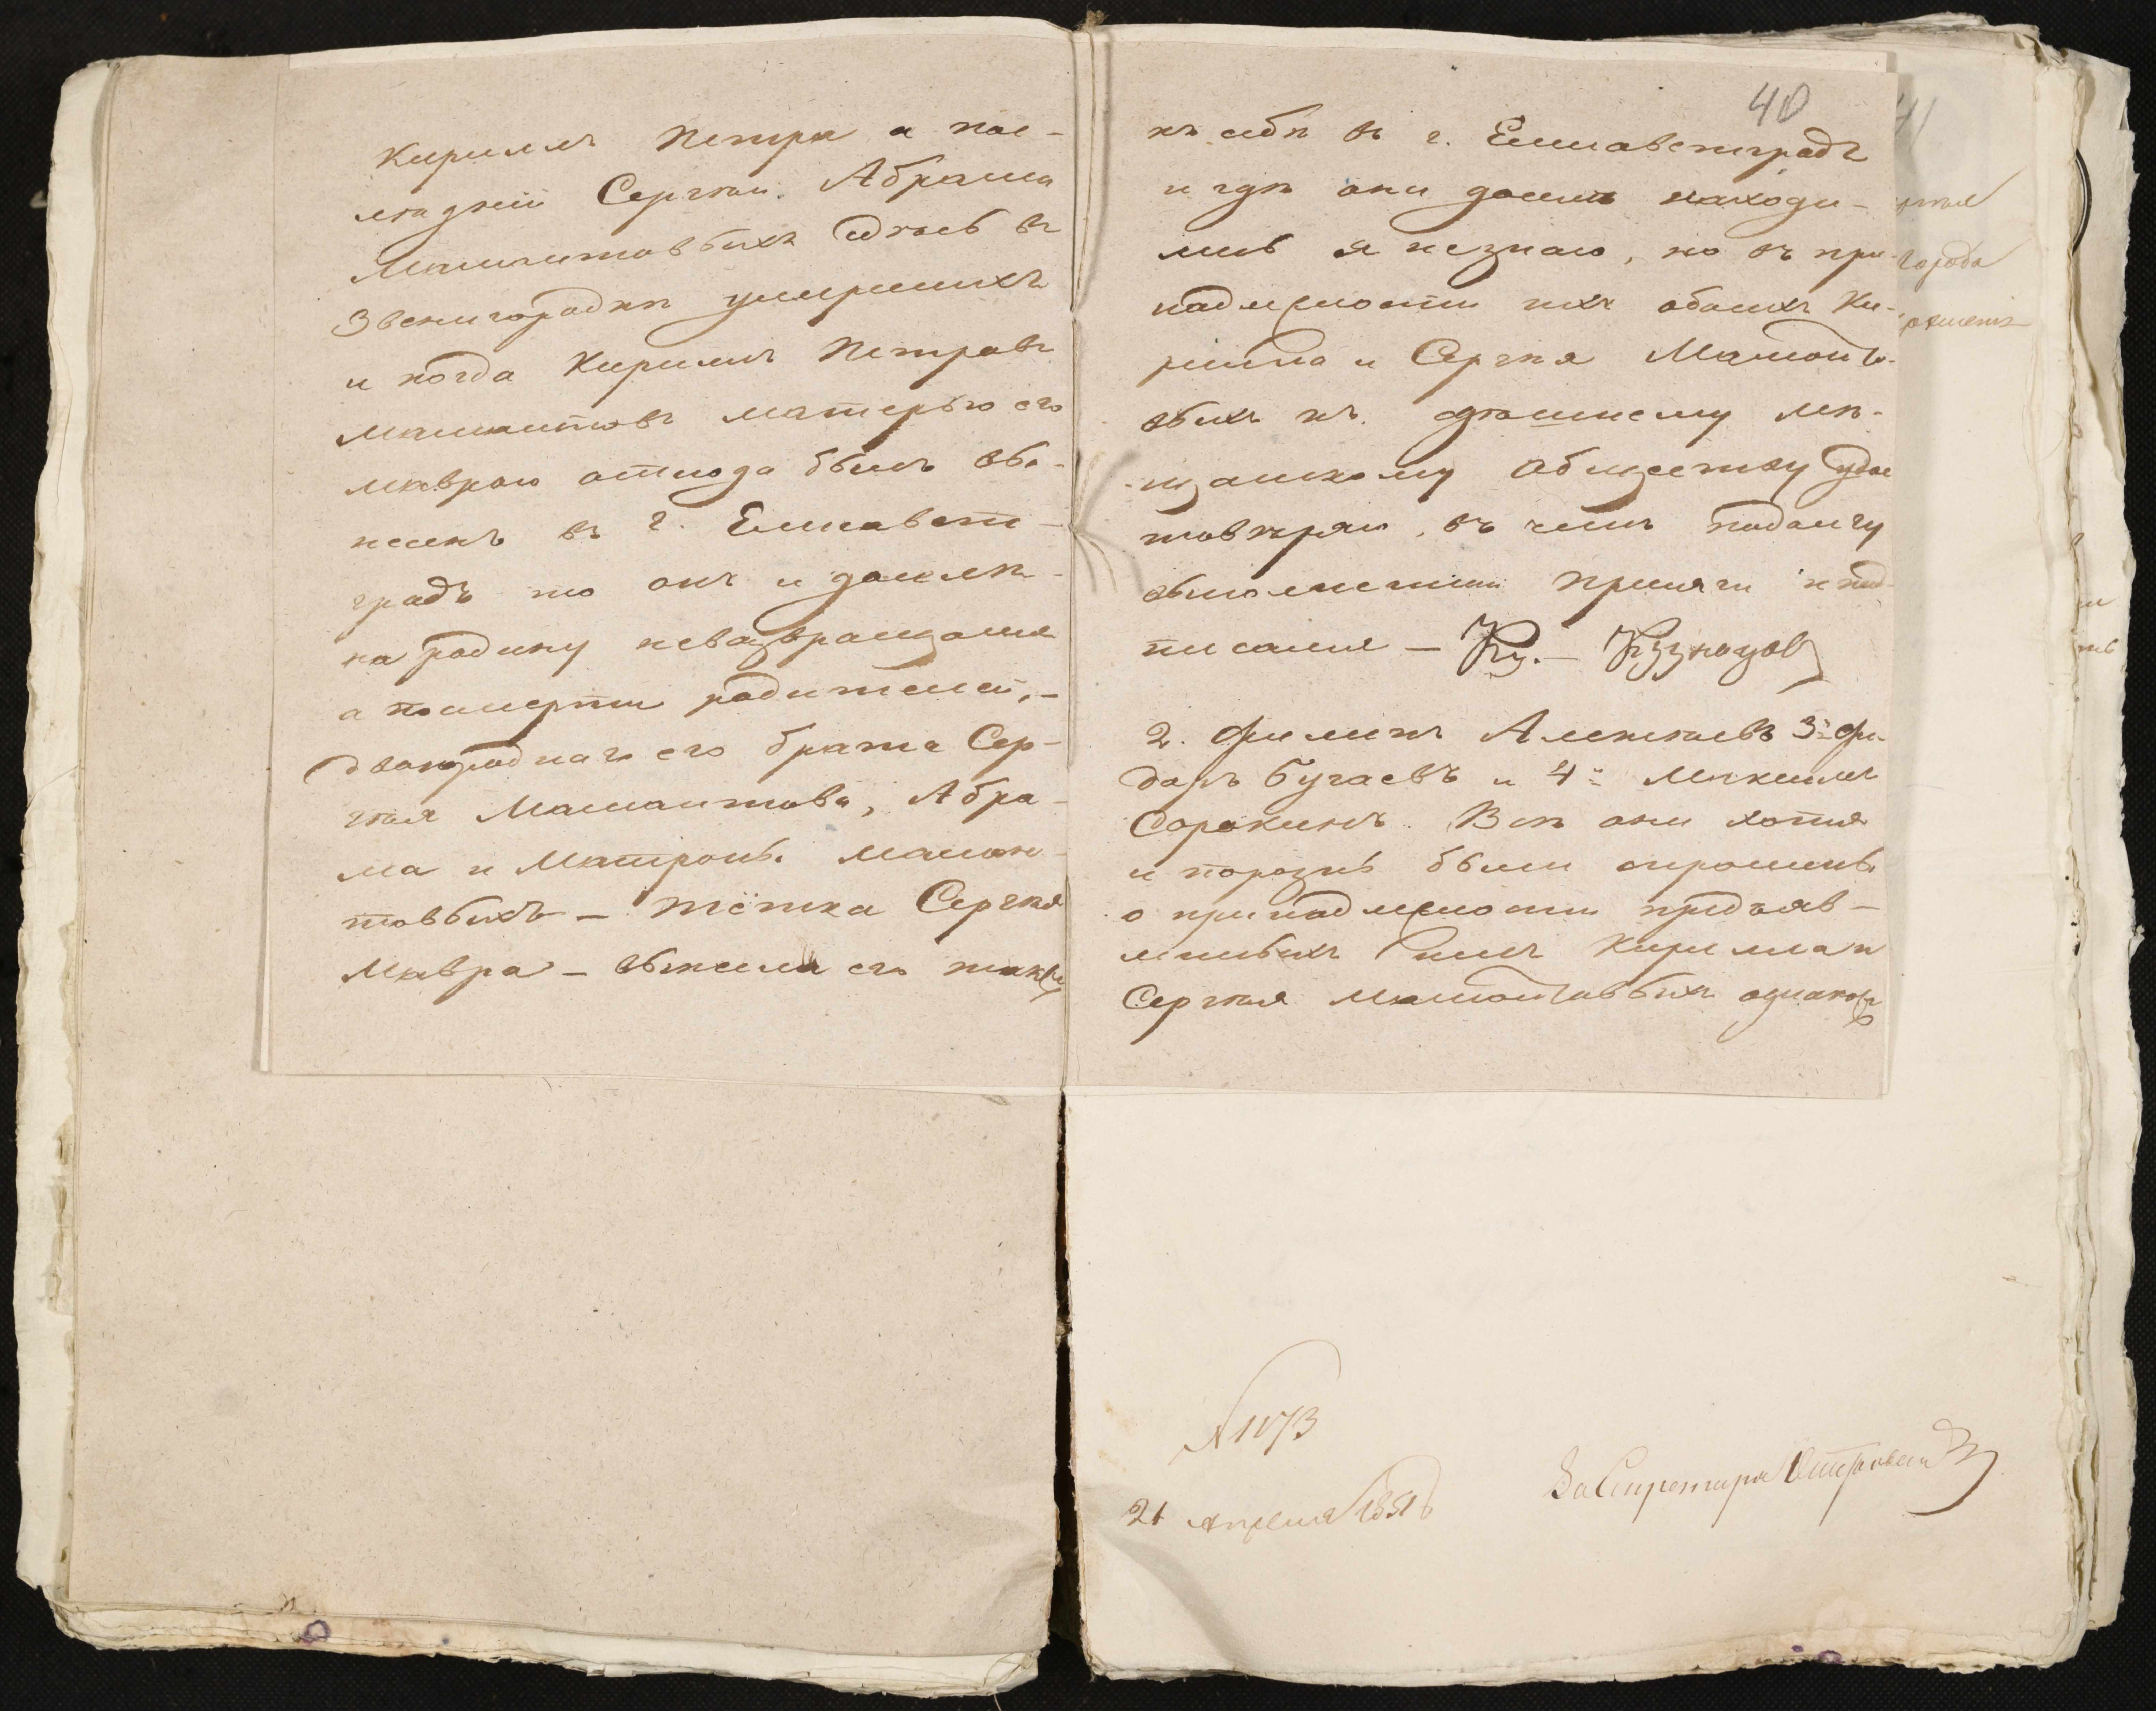 Кирилъ Петра а пос-
лѣдній Сергѣй Абрама
Мамантовыхъ здѣсь въ
Звенигородкѣ умершихъ
и когда Кирилъ Петровъ
Мамантовъ матерью его
Маврою отсюда былъ выве-
зенъ въ г. Елисавет-
градъ то онъ и до
на родину невозвращался
а посмерти родителей,-
двоюроднаго его брата Сер-
гѣя Мамантова, Абра-
ма и Матроны Маман-
товыхъ - тётка Сергѣя
Мавра - взяла его также
40
къ себѣ въ г. Елисаветградъ
и гдѣ они доселѣ находи-
лись я незнаю, но въ при-
надлежности ихъ обоихъ Ки-
рила и Сергѣя Мамонто-
выхъ къ здѣшнему мѣ-
щанскому Обществу удос-
товѣряю, въ чемъ подолгу
выполнении присяги и под-
писался - Ку.- Кузнецовъ
2. Филипъ Алексѣевъ 3й Фе-
доръ Бугаевъ и 4й Максимъ
Сорокинъ. Всѣ они хотя
и порознь были спрошены
о принадлежности предъяв-
ленныхъ имъ Кирилла и
Сергѣя Мамонтовыхъ однако
города
№ 1073
21 Апреля 1851 г
За Секретаря